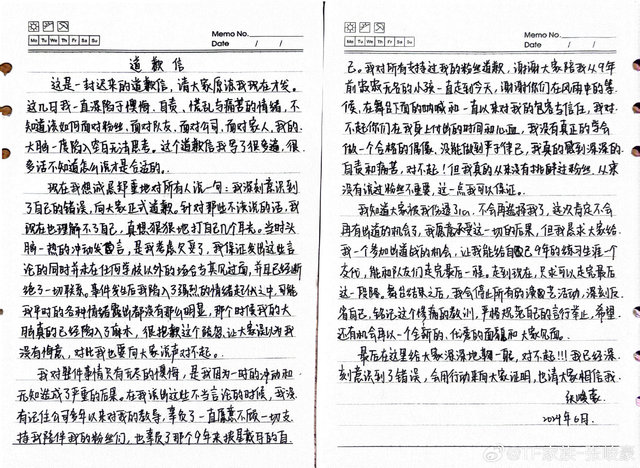 Memo No.
Mo Tu We Th Fr Sa Su
Date / /
道歉信
这是一封迟来的道歉信,请大家原谅我现在才发。
这几日我一直深陷于懊悔、自责、慌乱与痛苦的情绪,不
知道该如何面对粉丝,面对队友,面对公司,面对家人,我的
大脑一度陷入空白无法思考。这个道歉信我写了很多遍,很
多话不知道怎么说才是合适的。
现在我想诚恳郑重地对所有人说一句:我深刻意识到
了自己的错误,向大家正式道歉。针对那些不该说的话,我
现在也理解不了自己,真想狠狠地打自己几个耳光。当时头
脑一热的冲动发言,是我考虑欠妥了,我保证发出这些言
论的同时并未在任何学校以外的场合与其见过面,并且已经断
绝了一切联系。事件发生后我陷入了强烈的情绪起伏之中,可能
我平时的各种情绪露出都没有那么明显,那个时候我的大
脑真的已经陷入了麻木,很抱歉这个疏忽,让大家误以为我
没有悔意,对此我也要向大家说声对不起。
我对整件事情只有无尽的懊悔,是我因为一时的冲动和
无知造成了严重的后果。在我说出这些不当言论的时候,我没
有记住公司多年以来对我的教导,辜负了一直愿意不顾一切支
持我陪伴我的粉丝们,也辜负了那个9年来披星戴月的自
Memo No.
Mo Tu We Th Fr Sa Su
Date / /
己。我对所有支持过我的粉丝道歉,谢谢大家陪我从9年
前寂寂无名的小孩一直走到今天,谢谢你们在风雨中的等
候,在舞台下面的呐喊和一直以来对我的包容与信任,我对
不起你们在我身上付出的时间和心血,我没有真正的学会
做一个合格的偶像,没能做到严于律己,我真的感到深深的
自责和痛苦,对不起!但我真的从来没有排解过粉丝,从来
没有说过粉丝不重要,这一点我可以保证。
我知道大家被我伤透了心,不会再选择我了,这次肯定不会
再有出道的机会了,我愿意承受这一切的后果,但我恳求大家给
我一个参加出道战的机会,让我能给自己9年的练习生涯一个
交代,能和队友们走完最后一程。走到现在,只求可以走完最后
这一段路。舞台结束之后,我会停止所有的演艺活动,深刻反
省自己,铭记这个惨痛的教训,严格规范自己的言行举止,希望
还有机会再以一个全新的、优秀的面貌和大家见面。
最后在这里给大家深深地鞠一躬,对不起!!!我已经深
刻意识到了错误,会用行动来向大家证明,也请大家相信我。
张峻豪
2024年6月
@TF家族-张峻豪